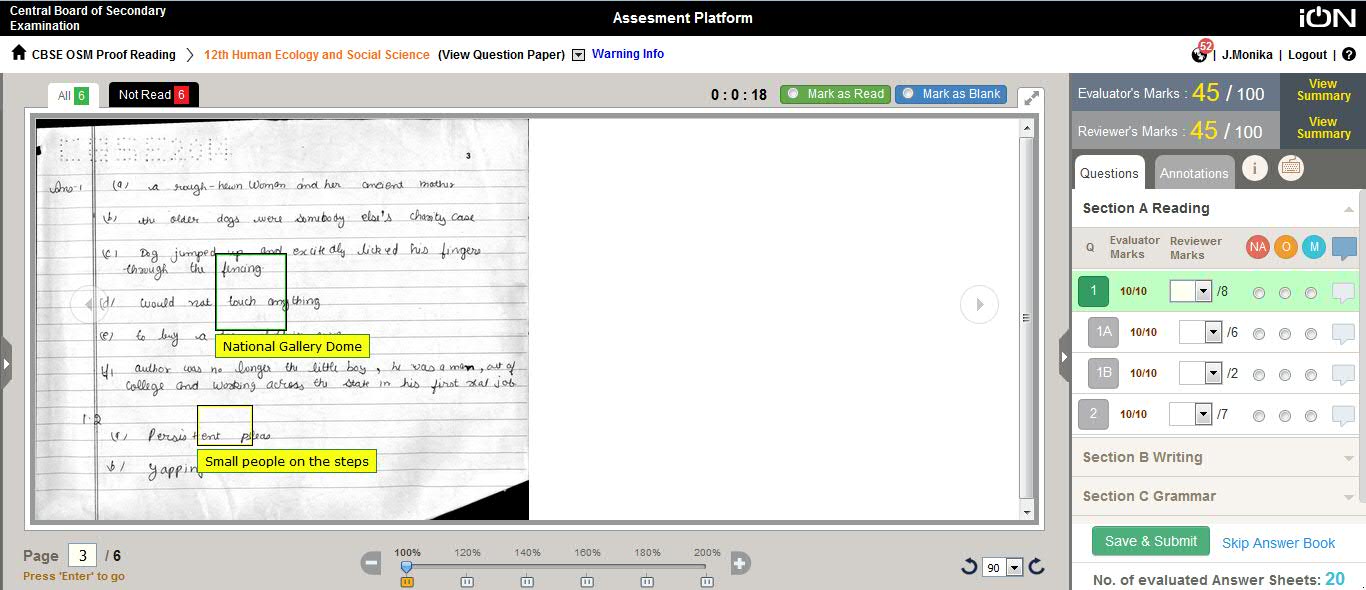 Central Board of Secondary
Examination
Assesment Platform
iON
CBSE OSM Proof Reading
12th Human Ecology and Social Science
(View Question Paper)
Warning Info
52
| J.Monika | Logout | ?
All 6
Not Read 6
0 : 0 : 18
Mark as Read
Mark as Blank
CBSE2014
3
Ans-1 (a) a rough-hewn woman and her ancient mother
(b) the older dogs were somebody else's charity case
(c) Dog jumped up and excitedly licked his fingers
through the fencing.
(d) would not touch anything
(e) to buy a
National Gallery Dome
author was no longer the little boy, he was a man, out of
college and working across the state in his first real job
1.2
(a) Persistent pleas
Small people on the steps
b) yappin
Page 3 / 6
Press 'Enter' to go
100% 120% 140% 160% 180% 200%
90
Evaluator's Marks : 45 / 100
View Summary
Reviewer's Marks : 45 / 100
View Summary
Questions
Annotations
i
Section A Reading
Q Evaluator Marks Reviewer Marks NA O M
1 10/10 /8
1A 10/10 /6
1B 10/10 /2
2 10/10 /7
Section B Writing
Section C Grammar
Save & Submit
Skip Answer Book
No. of evaluated Answer Sheets: 20